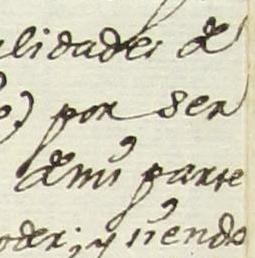 alidades de
e) por ser
de mi parte
oder; y siendo